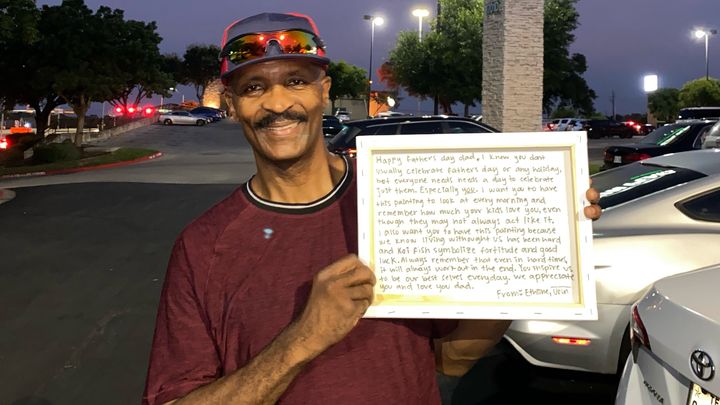 Happy Fathers day dad. I know you dont
usually celebrate Fathers Day or any holiday,
but everyone needs needs a day to celebrate
just them. Especially you. I want you to have
this painting to look at every morning and
remember how much your kids love you, even
though they may not always act like it.
I also want you to have this painting because
we know living withought us has been hard
and Koi fish symbolize fortitude and good
luck. Always remember that even in hard times,
it will always workout in the end. You inspire us
to be our best selves everyday. We appreciate
you and love you dad.
From: